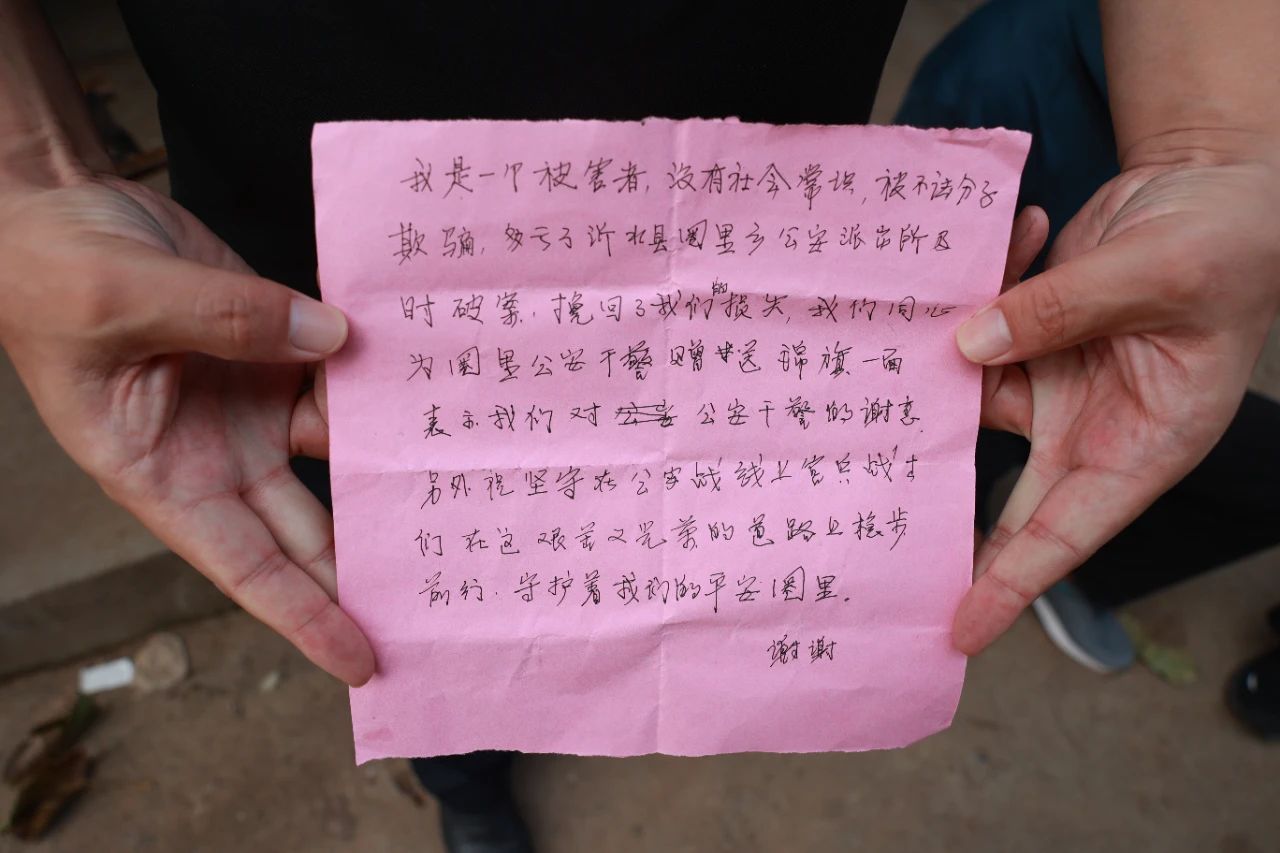 我是一个被害者，没有社会常识，被不法分子
欺骗，多亏了沂水县圈里乡公安派出所及
时破案，挽回了我们的损失，我们同心
为圈里公安干警赠送锦旗一面
表示我们对公安公安干警的谢意
另外祝坚守在公安战线上官兵战士
们在这艰苦又光荣的道路上稳步
前行．守护着我们的平安圈里。
谢谢